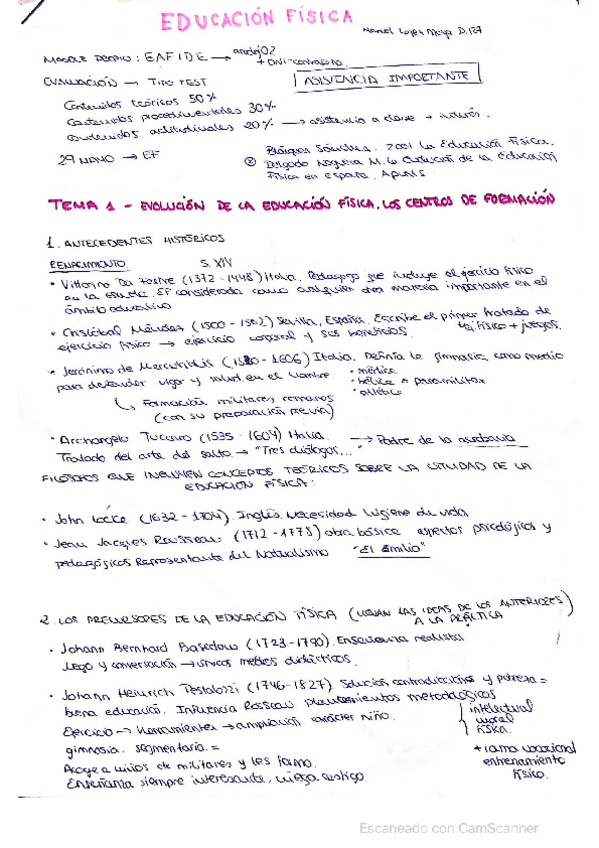 EDUCACIÓN FÍSICA
D.127
MOODLE PROPIO: EAFIDE → andej02
+ DNI
EVALUACIÓN → TIPO TEST
ASISTENCIA IMPORTANTE
Contenidos teóricos 50%
Contenidos procedimentales 30%
Contenidos actitudinales 20% → asistencia a clase + interés.
29 MAYO → EF
Blázquez Sánchez. 2001 La Educación Física.
Delgado Noguera M. La Evolución de la Educación
Física en España. Apunts
TEMA 1 - EVOLUCIÓN DE LA EDUCACIÓN FÍSICA. LOS CENTROS DE FORMACIÓN
1. ANTECEDENTES HISTÓRICOS
RENACIMIENTO S. XIV
• Vittorino Da Feltre (1372-1448) Italia. Pedagogo que incluye el ejercicio físico
en la escuela. EF considerada como cualquier otra materia importante en el
ámbito educativo
• Cristóbal Méndez (1500-1562) Sevilla, España. Escribe el primer tratado de
ejercicio físico → ejercicio corporal y sus beneficios. físico + juegos.
• Jerónimo de Mercurialis (1530-1606) Italia. Definía la gimnasia como medio
para defender vigor y salud en el hombre.
• médica
• bélica o paramilitar
• atlética
Formación militares romanos
(con su preparación previa)
• Archangelo Tuccaro (1535-1604) Italia → Padre de la acrobacia
Tratado del arte del salto → "Tres diálogos..."
FILÓSOFOS QUE INCLUYEN CONCEPTOS TEÓRICOS SOBRE LA UTILIDAD DE LA
EDUCACIÓN FÍSICA:
• John Locke (1632-1704). Inglés. Necesidad higiene de vida
• Jean Jacques Rousseau (1712-1778) obra básica aspectos psicológicos y
pedagógicos Representante del Naturalismo "El Emilio"
2. LOS PRECURSORES DE LA EDUCACIÓN FÍSICA (LLEVAN LAS IDEAS DE LOS ANTERIORES
A LA PRÁCTICA)
• Johann Bernhard Basedow (1723-1790). Enseñanza realista
Juego y conversación → únicos medios didácticos.
• Johann Heinrich Pestalozzi (1746-1827). Solución y pobreza =
buena educación. Influencia Rosseau planteamientos metodológicos
Ejercicio → herramientas → ampliación carácter niño.
intelectual
moral
física.
gimnasia. segmentaria. =
+ rama vocacional
entrenamiento
físico.
Acoge a niños de militares y les forma.
Enseñanza siempre interesante, niega castigo.
Escaneado con CamScanner